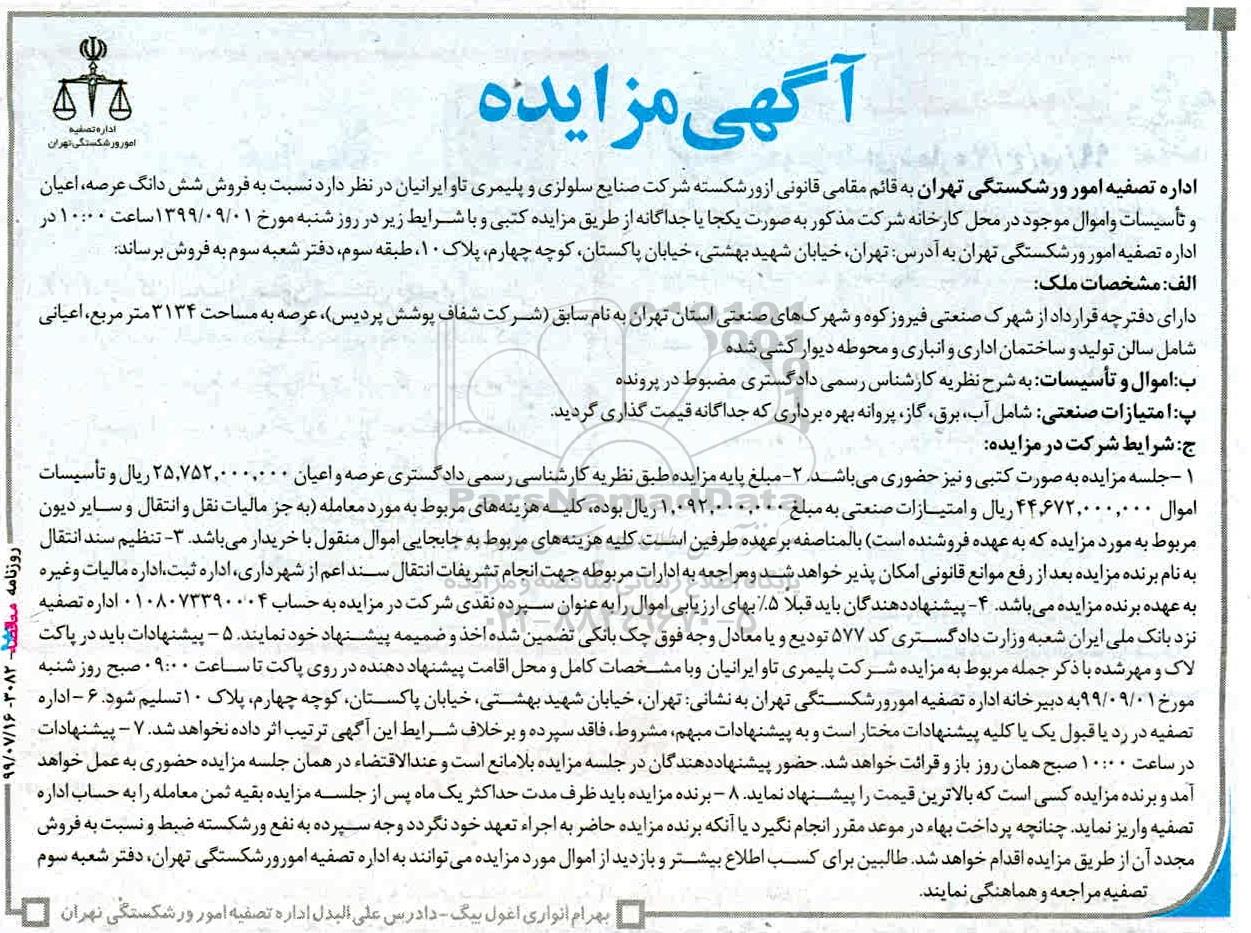 آگهی مزایده
اداره تصفیه
امور ورشکستگی تهران
اداره تصفیه امور ورشکستگی تهران به قائم مقامی قانونی از ورشکسته شرکت صنایع سلولزی و پلیمری تاو ایرانیان در نظر دارد نسبت به فروش شش دانگ عرصه، اعیان
و تأسیسات و اموال موجود در محل کارخانه شرکت مذکور به صورت یکجا یا جداگانه از طریق مزایده کتبی و با شرایط زیر در روز شنبه مورخ ۱۳۹۹/۰۹/۰۱ ساعت ۱۰:۰۰ در
اداره تصفیه امور ورشکستگی تهران به آدرس: تهران، خیابان شهید بهشتی، خیابان پاکستان، کوچه چهارم، پلاک ۱۰، طبقه سوم، دفتر شعبه سوم به فروش برساند:
الف: مشخصات ملک:
دارای دفترچه قرارداد از شهرک صنعتی فیروزکوه و شهرک‌های صنعتی استان تهران به نام سابق (شرکت شفاف پوشش پردیس)، عرصه به مساحت ۳۱۳۴ متر مربع، اعیانی
شامل سالن تولید و ساختمان اداری و انباری و محوطه دیوار کشی شده
ب: اموال و تأسیسات: به شرح نظریه کارشناس رسمی دادگستری مضبوط در پرونده
پ: امتیازات صنعتی: شامل آب، برق، گاز، پروانه بهره برداری که جداگانه قیمت گذاری گردید.
ج: شرایط شرکت در مزایده:
۱- جلسه مزایده به صورت کتبی و نیز حضوری می‌باشد. ۲- مبلغ پایه مزایده طبق نظریه کارشناسی رسمی دادگستری عرصه و اعیان ۲۵,۷۵۲,۰۰۰,۰۰۰ ریال و تأسیسات
اموال ۴۴,۶۷۲,۰۰۰,۰۰۰ ریال و امتیازات صنعتی به مبلغ ۱,۰۹۲,۰۰۰,۰۰۰ ریال بوده، کلیه هزینه‌های مربوط به مورد معامله (به جز مالیات نقل و انتقال و سایر دیون
مربوط به مورد مزایده که به عهده فروشنده است) بالمناصفه بر عهده طرفین است. کلیه هزینه‌های مربوط به جابجایی اموال منقول با خریدار می‌باشد. ۳- تنظیم سند انتقال
به نام برنده مزایده بعد از رفع موانع قانونی امکان پذیر خواهد شد و مراجعه به ادارات مربوطه جهت انجام تشریفات انتقال سند اعم از شهرداری، اداره ثبت، اداره مالیات و غیره
به عهده برنده مزایده می‌باشد. ۴- پیشنهاددهندگان باید قبلا ۵٪ بهای ارزیابی اموال را به عنوان سپرده نقدی شرکت در مزایده به حساب ۰۱۰۸۰۷۳۳۹۰۰۰۴ اداره تصفیه
نزد بانک ملی ایران شعبه وزارت دادگستری کد ۵۷۷ تودیع و یا معادل وجه فوق چک بانکی تضمین شده اخذ و ضمیمه پیشنهاد خود نمایند. ۵- پیشنهادات باید در پاکت
لاک و مهر شده با ذکر جمله مربوط به مزایده شرکت پلیمری تاو ایرانیان و با مشخصات کامل و محل اقامت پیشنهاد دهنده در روی پاکت تا ساعت ۰۹:۰۰ صبح روز شنبه
مورخ ۹۹/۰۹/۰۱ به دبیرخانه اداره تصفیه امور ورشکستگی تهران به نشانی: تهران، خیابان شهید بهشتی، خیابان پاکستان، کوچه چهارم، پلاک ۱۰ تسلیم شود. ۶- اداره
تصفیه در رد یا قبول یک یا کلیه پیشنهادات مختار است و به پیشنهادات مبهم، مشروط، فاقد سپرده و برخلاف شرایط این آگهی ترتیب اثر داده نخواهد شد. ۷- پیشنهادات
در ساعت ۱۰:۰۰ صبح همان روز باز و قرائت خواهد شد. حضور پیشنهاددهندگان در جلسه مزایده بلامانع است و عندالاقتضاء در همان جلسه مزایده حضوری به عمل خواهد
آمد و برنده مزایده کسی است که بالاترین قیمت را پیشنهاد نماید. ۸- برنده مزایده باید ظرف مدت حداکثر یک ماه پس از جلسه مزایده بقیه ثمن معامله را به حساب اداره
تصفیه واریز نماید. چنانچه پرداخت بهاء در موعد مقرر انجام نگیرد یا آنکه برنده مزایده حاضر به اجراء تعهد خود نگردد وجه سپرده به نفع ورشکسته ضبط و نسبت به فروش
مجدد آن از طریق مزایده اقدام خواهد شد. طالبین برای کسب اطلاع بیشتر و بازدید از اموال مورد مزایده می‌توانند به اداره تصفیه امور ورشکستگی تهران، دفتر شعبه سوم
تصفیه مراجعه و هماهنگی نمایند.
بهرام انواری اغول بیگ - دادرس علی البدل اداره تصفیه امور ورشکستگی تهران
روزنامه مناقصه ۲۰۸۲- ۹۹/۰۷/۱۶
ParsNamadData
پایگاه اطلاع رسانی مناقصه و مزایده
۰۲۱-۸۸۳۴۹۶۷۰-۵